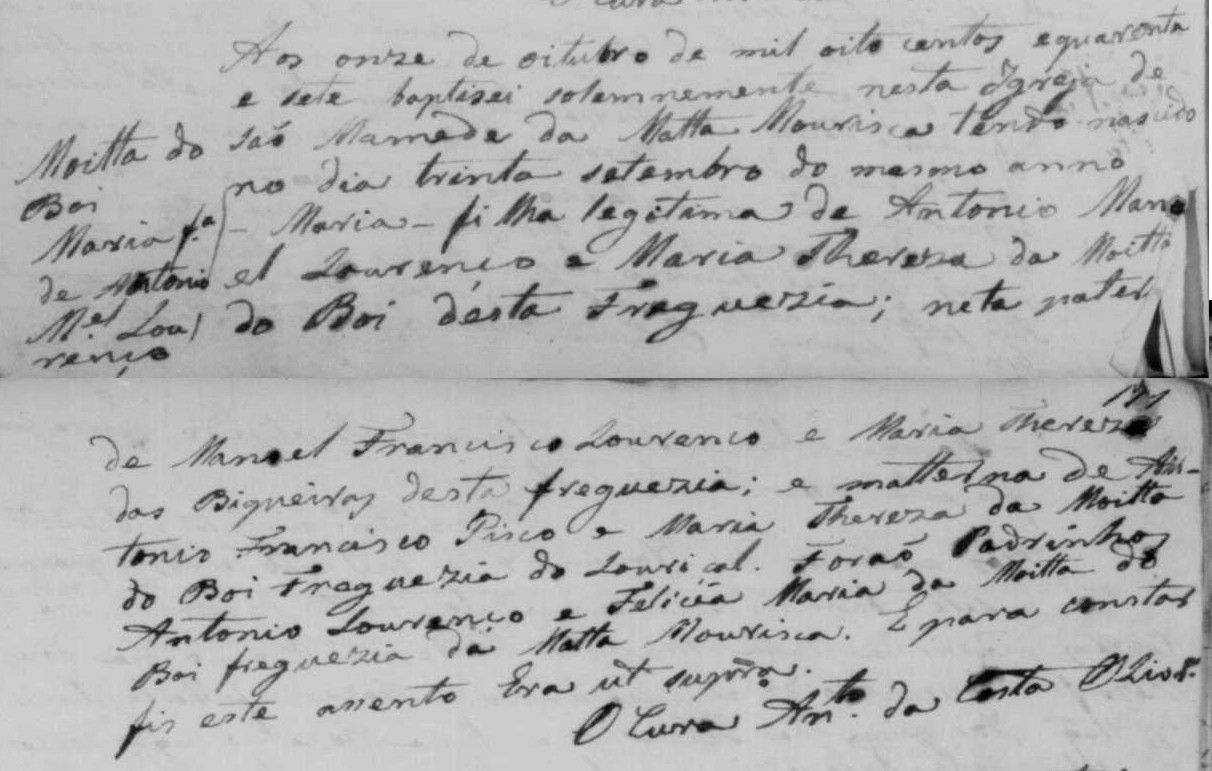 Aos onze de oitubro de mil oito centos e quarenta
e sete baptisei solemnemente nesta Igreja de
são Mamede da Matta Mourisca tendo nascido
no dia trinta setembro do mesmo anno
- Maria - filha legitima de Antonio Mano
el Lourenço e Maria Thereza da Moitta
do Boi desta Freguezia; neta pater
Moitta do
Boi
Maria f.a
de Antonio
M.el Lou
renço
171
de Manoel Francisco Lourenco e Maria Thereza
das Biqueiras desta freguezia; e matterna de An-
tonio Francisco Pisco e Maria Thereza da Moitta
do Boi Freguezia do Louriçal. Foraõ Padrinhos
Antonio Lourenço e Felicia Maria da Moitta do
Boi freguezia da Matta Mourisca. E para constar
fis este assento Era ut supra.
O Cura An.to da Costa Oliv.ra